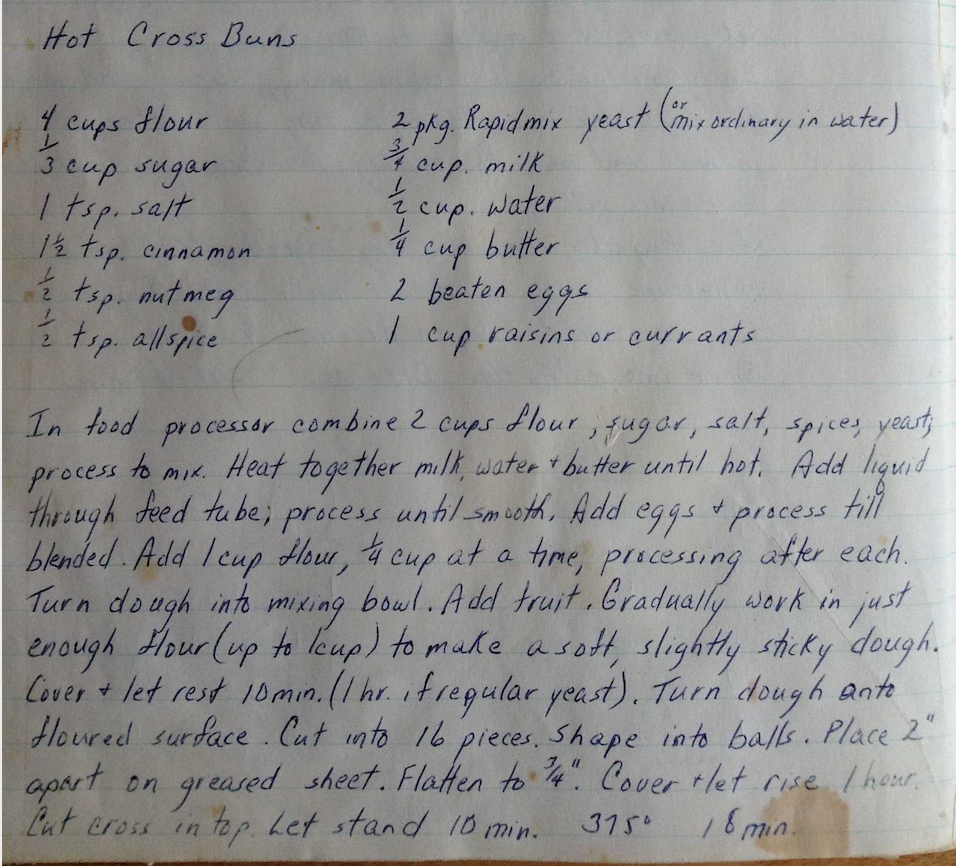 Hot Cross Buns
4 cups flour
1/3 cup sugar
1 tsp. salt
1 1/2 tsp. cinnamon
1/2 tsp. nutmeg
1/2 tsp. allspice
2 pkg. Rapidmix yeast (or mix ordinary in water)
3/4 cup. milk
1/2 cup. water
1/4 cup butter
2 beaten eggs
1 cup raisins or currants
In food processor combine 2 cups flour, sugar, salt, spices, yeast;
process to mix. Heat together milk, water + butter until hot. Add liquid
through feed tube; process until smooth. Add eggs + process till
blended. Add 1 cup flour, 1/4 cup at a time, processing after each.
Turn dough into mixing bowl. Add fruit. Gradually work in just
enough flour (up to 1cup) to make a soft, slightly sticky dough.
Cover + let rest 10min. (1 hr. if regular yeast). Turn dough onto
floured surface. Cut into 16 pieces. Shape into balls. Place 2"
apart on greased sheet. Flatten to 3/4". Cover + let rise 1 hour.
Cut cross in top. Let stand 10 min. 375° 18 min.